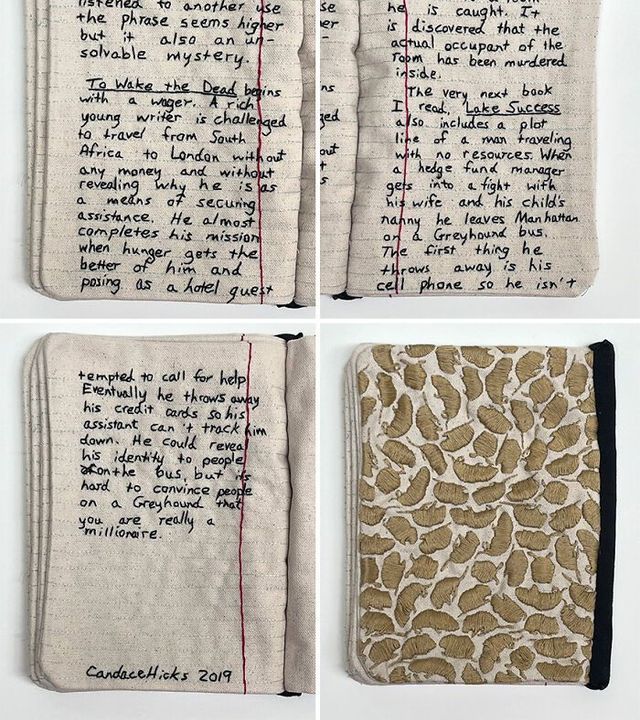 listened to another use
the phrase seems higher
but it also an un-
solvable mystery.
To Wake the Dead begins
with a wager. A rich
young writer is challenged
to travel from South
Africa to London without
any money and without
revealing why he is as
a means of securing
assistance. He almost
completes his mission
when hunger gets the
better of him and
posing as a hotel guest
he is caught. It
is discovered that the
actual occupant of the
room has been murdered
inside.
The very next book
I read, Lake Success
also includes a plot
line of a man traveling
with no resources. When
a hedge fund manager
gets into a fight with
his wife and his child's
nanny he leaves Manhattan
on a Greyhound bus.
The first thing he
throws away is his
cell phone so he isn't
tempted to call for help
Eventually he throws away
his credit cards so his
assistant can't track him
down. He could reveal
his identity to people
on the bus, but it's
hard to convince people
on a Greyhound that
you are really a
millionaire.
Candace Hicks 2019